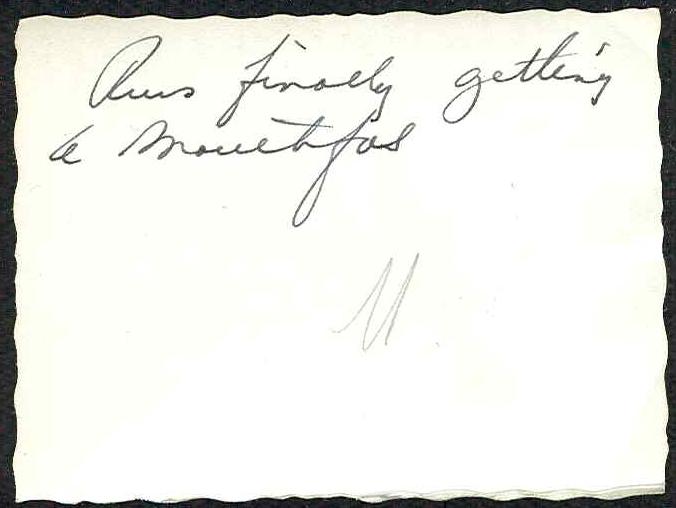 Russ finally getting
a mouthful
11